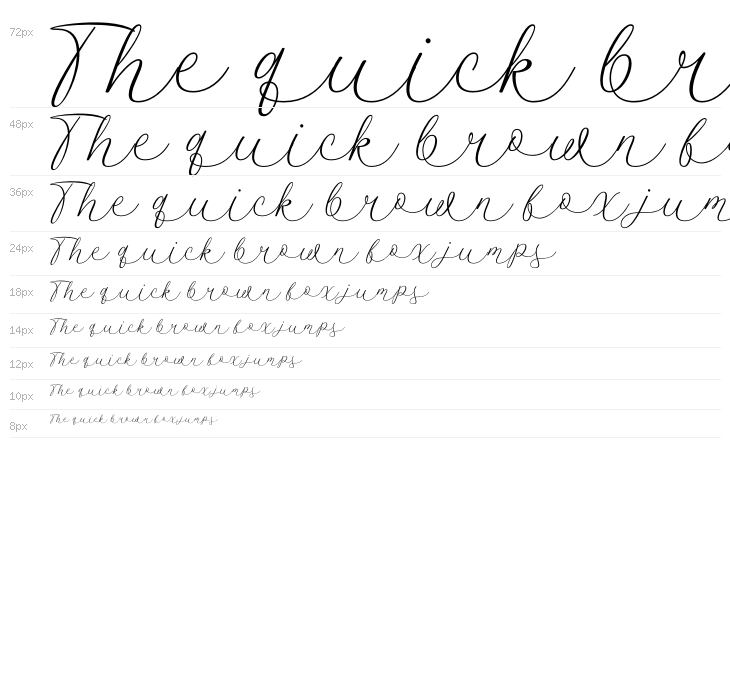 72px The quick br
48px The quick brown fo
36px The quick brown fox jum
24px The quick brown fox jumps
18px The quick brown fox jumps
14px The quick brown fox jumps
12px The quick brown fox jumps
10px The quick brown fox jumps
8px The quick brown fox jumps